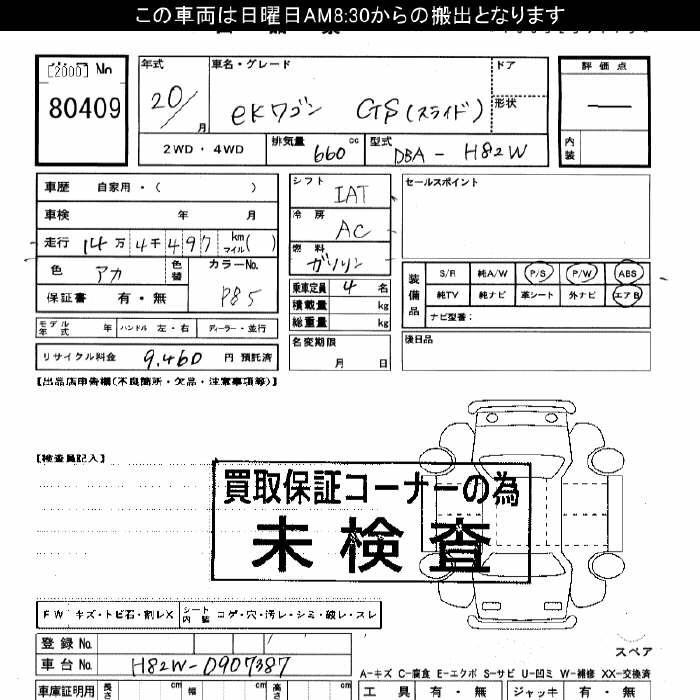 この車両は日曜日AM8:30からの搬出となります
[2000] No
80409
年式 車名・グレード ドア 評価点
20/ 月 eKワゴン GS(スライド) 形状
2WD・4WD 排気量 660 cc 型式 DBA-H82W 内装
車歴 自家用・( )
シフト IAT
セールスポイント
車検 年 月
冷房 AC
走行 14万4千497 km マイル( )
燃料 ガソリン
色 アカ 色替 カラーNo. P85
装備品 S/R 純A/W P/S P/W ABS
乗車定員 4 名
純TV 純ナビ 革シート 外ナビ エアB
保証書 有・無
積載量 kg
ナビ型番:
総重量 kg
モデル年式 年 ハンドル 左・右 ディーラー・並行
名変期限 月 日
後日品
リサイクル料金 9,460 円 預託済
【出品店申告欄(不良箇所・欠品・注意事項等)】
【検査員記入】
買取保証コーナーの為
未検査
FW キズ・トビ石・割レX シート内装 コゲ・穴・汚レ・シミ・破レ・スレ
登録No.
スペア
車台No. H82W-0907387
A-キズ C-腐食 E-エクボ S-サビ U-凹ミ W-補修 XX-交換済
車庫証明用 長さ cm 幅 cm 高さ cm
工具 有・無 ジャッキ 有・無